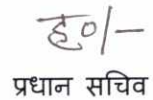 ह०/-
प्रधान सचिव